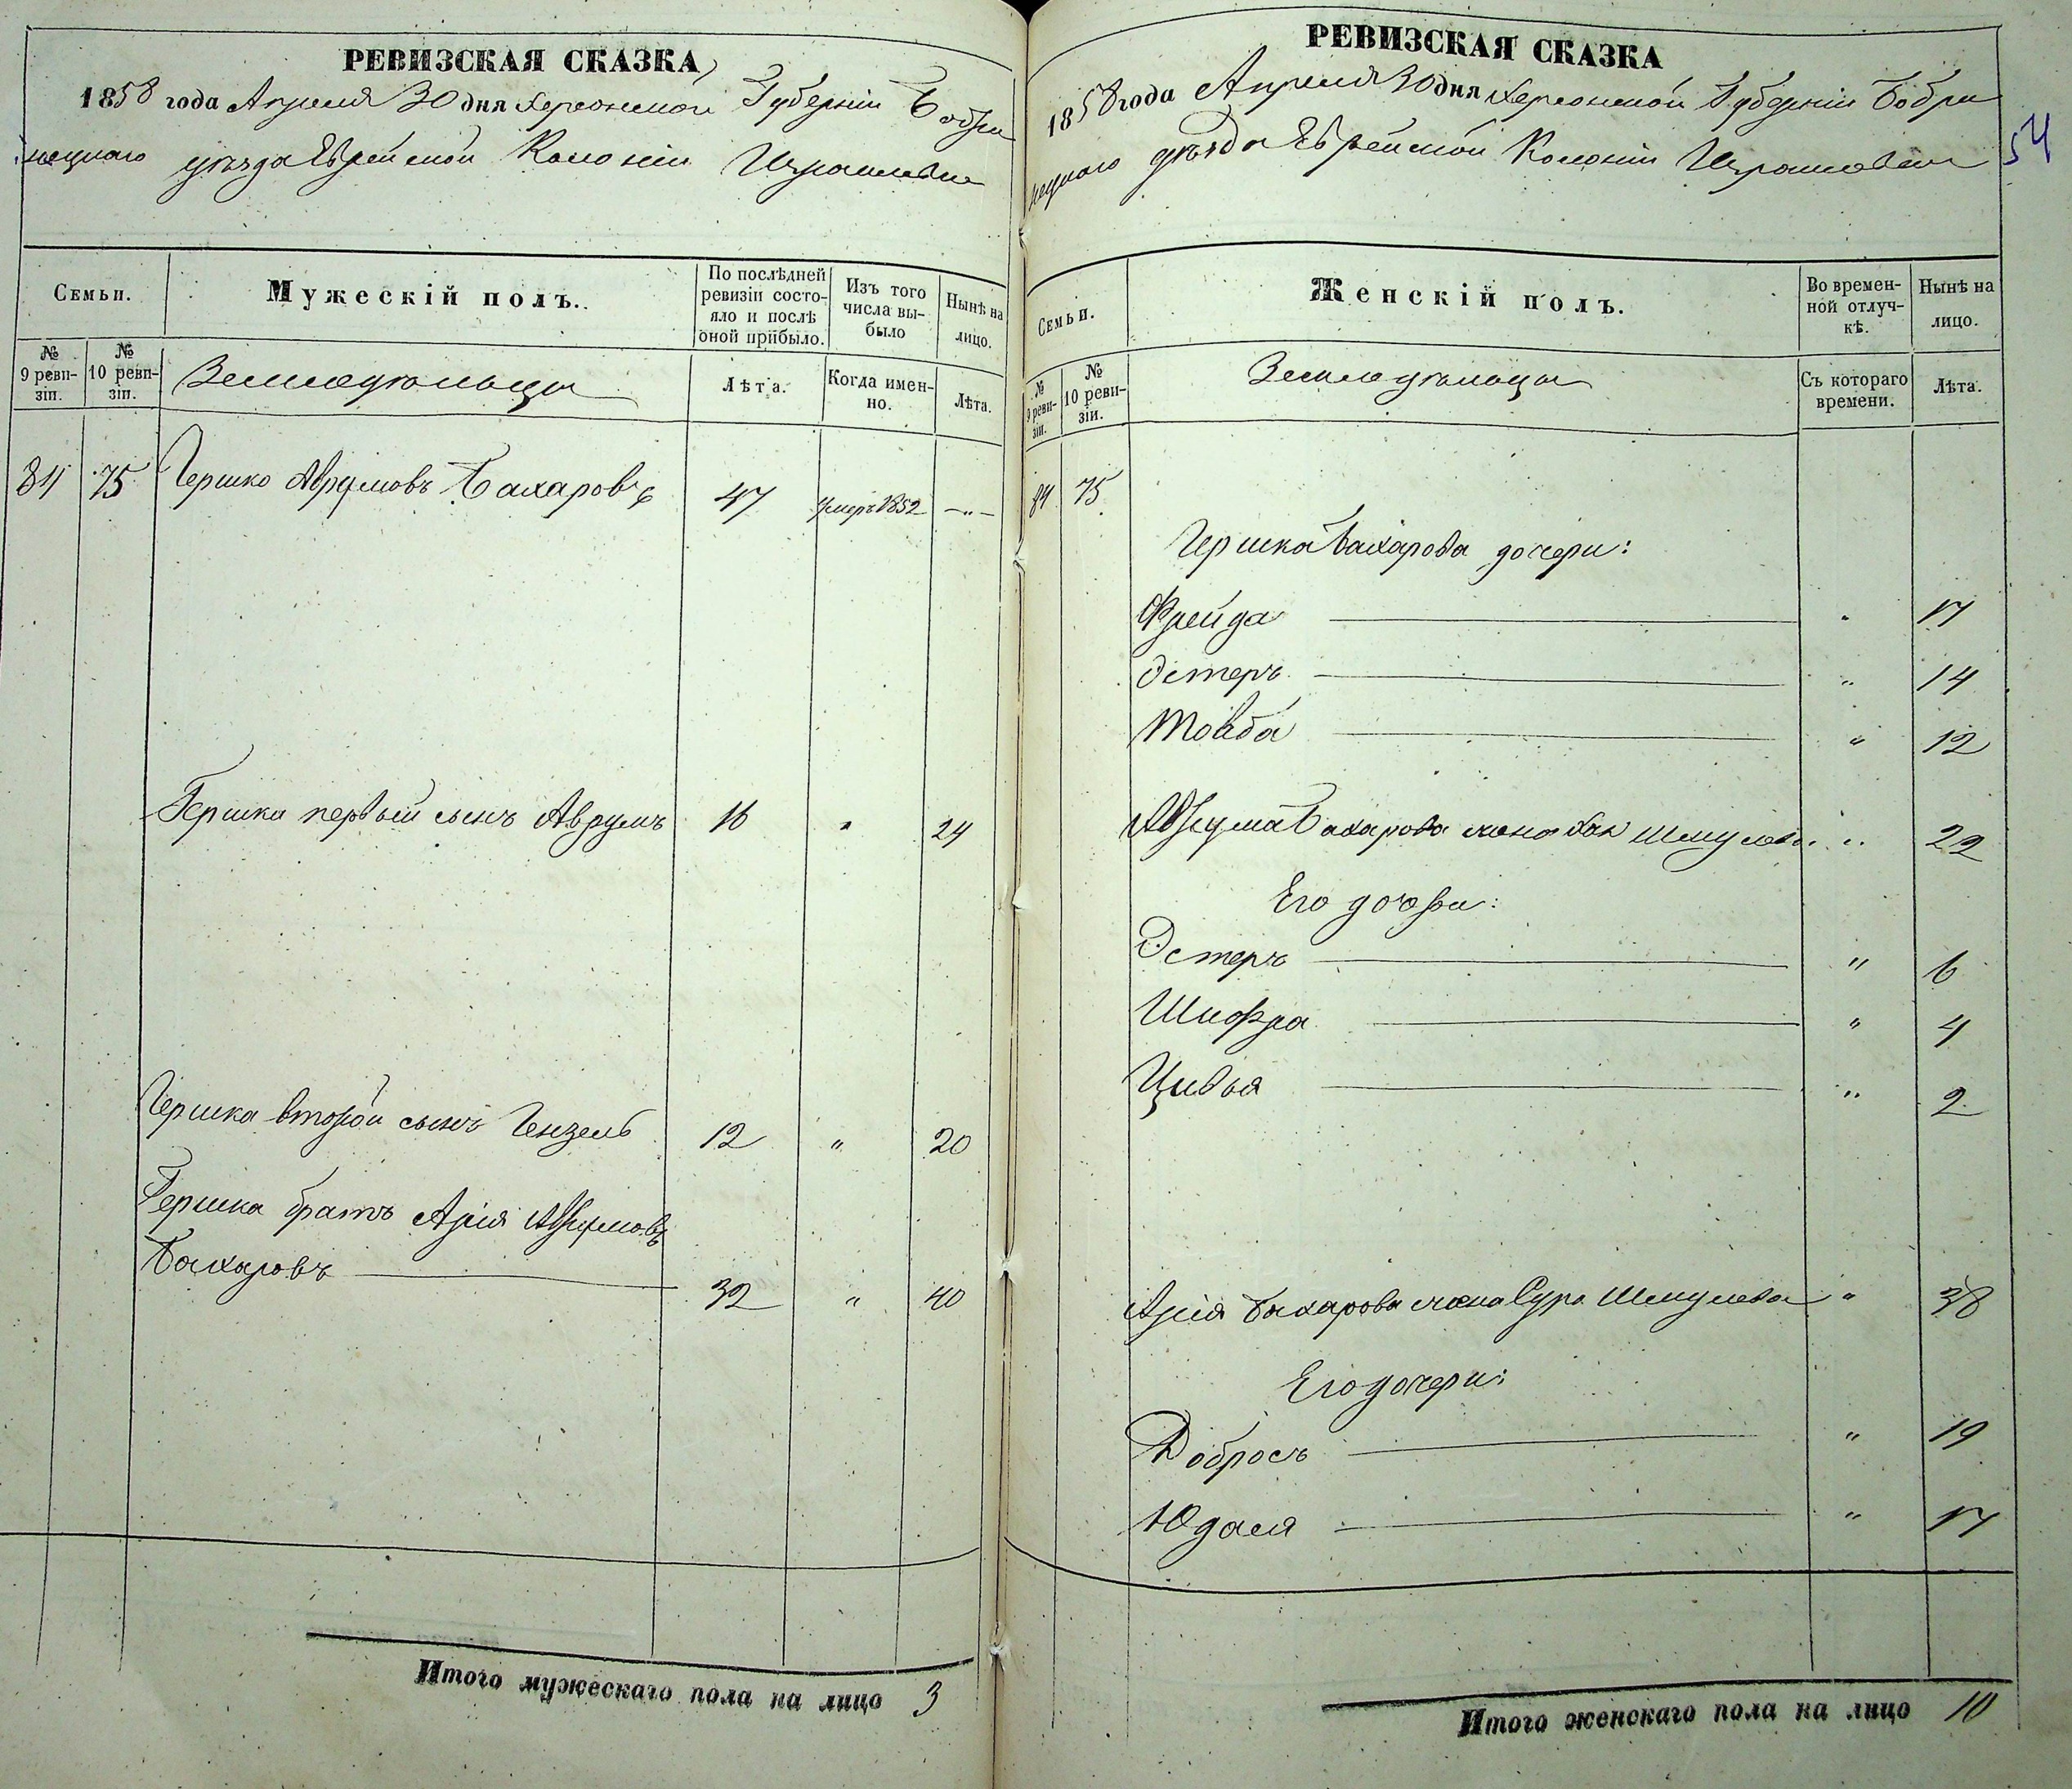 РЕВИЗСКАЯ СКАЗКА
1858 года Апреля 30 дня Херсонской Губерніи Бобри
нецкаго уѣзда Еврейской Колоніи Израилевки
Семьи.
Мужескій полъ.
По послѣдней ревизіи состо-яло и послѣ оной прибыло.
Изъ того числа вы-было
Нынѣ на лицо.
№ 9 реви-зіи.
№ 10 реви-зіи.
Земледѣльцы
Лѣта.
Когда имен-но.
Лѣта.
84 75 Гершко Аврумовъ Бахаровъ 47 умеръ 1852 -"-
Гершка первый сынъ Аврумъ 16 " 24
Гершка второй сынъ Гензель 12 " 20
Гершка братъ Арія Аврумовъ
Бахаровъ 32 " 40
Итого мужескаго пола на лицо 3
РЕВИЗСКАЯ СКАЗКА
1858 года Апреля 30 дня Херсонской Губерніи Бобри
нецкаго уѣзда Еврейской Колоніи Израилевки
54
Семьи.
Женскій полъ.
Во времен-ной отлуч-кѣ.
Нынѣ на лицо.
№ 9 реви-зіи.
№ 10 реви-зіи.
Земледѣльцы
Съ котораго времени.
Лѣта.
84 75
Гершка Бахарова дочери:
Фрейда " 17
Эстеръ " 14
Товба " 12
Аврума Бахарова жена Хая Шмулева " 22
Его дочери:
Эстеръ " 6
Шифра " 4
Цивья " 2
Арія Бахарова жена Сура Шмулева " 38
Его дочери:
Добросъ " 19
Юдася " 17
Итого женскаго пола на лицо 10